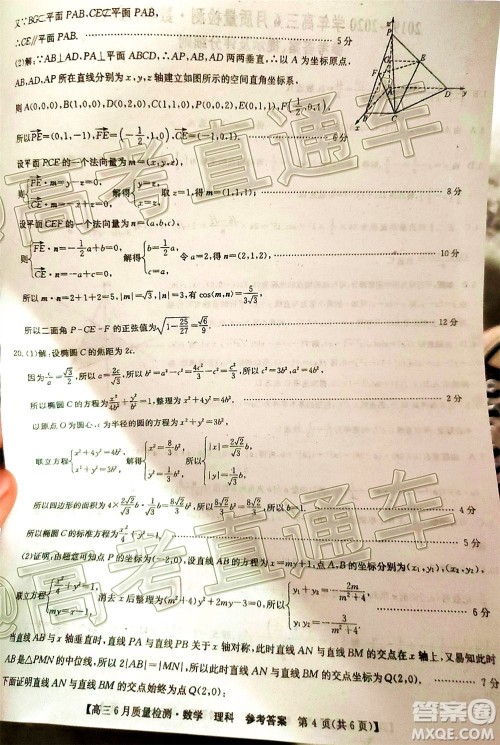 又∵BG⊂平面PAB,CE⊄平面PAB,
∴CE∥平面PAB. 5分
(2)解:∵AB⊥AD,PA⊥平面ABCD,∴AB,AD,AP两两垂直,以A为坐标原点,
AB,AD,AP所在直线分别为x,y,z轴建立如图所示的空间直角坐标系.
则A(0,0,0),B(1,0,0),C(1,1,0),P(0,0,2),E(0,1,1),F(1/2,0,1),
所以PE=(0,1,-1),FE=(-1/2,1,0),CE=(-1,0,1). 6分
设平面PCE的一个法向量为m=(x,y,z),
则{PE·m=y-z=0, CE·m=-x+z=0, 解得 取z=1,得m=(1,1,1); 8分
设平面CEF的一个法向量为n=(a,b,c),
则{FE·n=-1/2a+b=0, CE·n=-a+c=0, 解得{b=1/2a, c=a, 令a=2,得n=(2,1,2), 10分
所以m·n=2+1+2=5,|m|=√3,|n|=3,有cos⟨m,n⟩=5/(3√3),
所以二面角P-CE-F的正弦值为√(1-25/27)=√6/9. 12分
20.(1)解:设椭圆C的焦距为2c.
因为c/a=√3/2,所以a=2c/√3,所以b²=a²-c²=4c²/3-c²=c²/3,所以c²=3b²,所以a²=b²+c²=4b²,
所以椭圆C的方程为x²/4b²+y²/b²=1,整理为x²+4y²=4b², 2分
以原点O为圆心,a为半径的圆的方程为
联立方程{x²+4y²=4b², 解得{x²=8/3b², y²=1/3b², 所以{|x|=2√2/√3b, |y|=1/√3b,
所以四边形的面积为4×2√2/√3b·1/√3b=8√2/3b²,所以8√2/3b²=8√2/3,所以b²=1,
所以椭圆C的标准方程为x²/4+y²=1. 5分
(2)证明:由题意可知点P的坐标为(-2,0),设直线AB的方程为x=my+1,点A,B的坐标分别为(x₁,y₁),(x₂,y₂),
联立方程{x²/4+y²=1, my=x-1, 消去x后整理为(m²+4)y²+2my-3=0,所以{y₁+y₂=-2m/(m²+4), y₁y₂=-3/(m²+4),
当直线AB与x轴垂直时,直线PA与直线PB关于x轴对称,此时直线AN与直线BM的交点在x轴上,又易知此时
AB是△PMN的中位线,所以2|AB|=|MN|,所以此时直线AN与直线BM的交点为Q(2,0); 7分
下面证明直线AN与直线BM的交点始终为点Q(2,0):
【高三6月质量检测·数学 理科 参考答案 第4页(共6页)】
@高考直通车
@高考直通车
答案圈
MXQE.COM